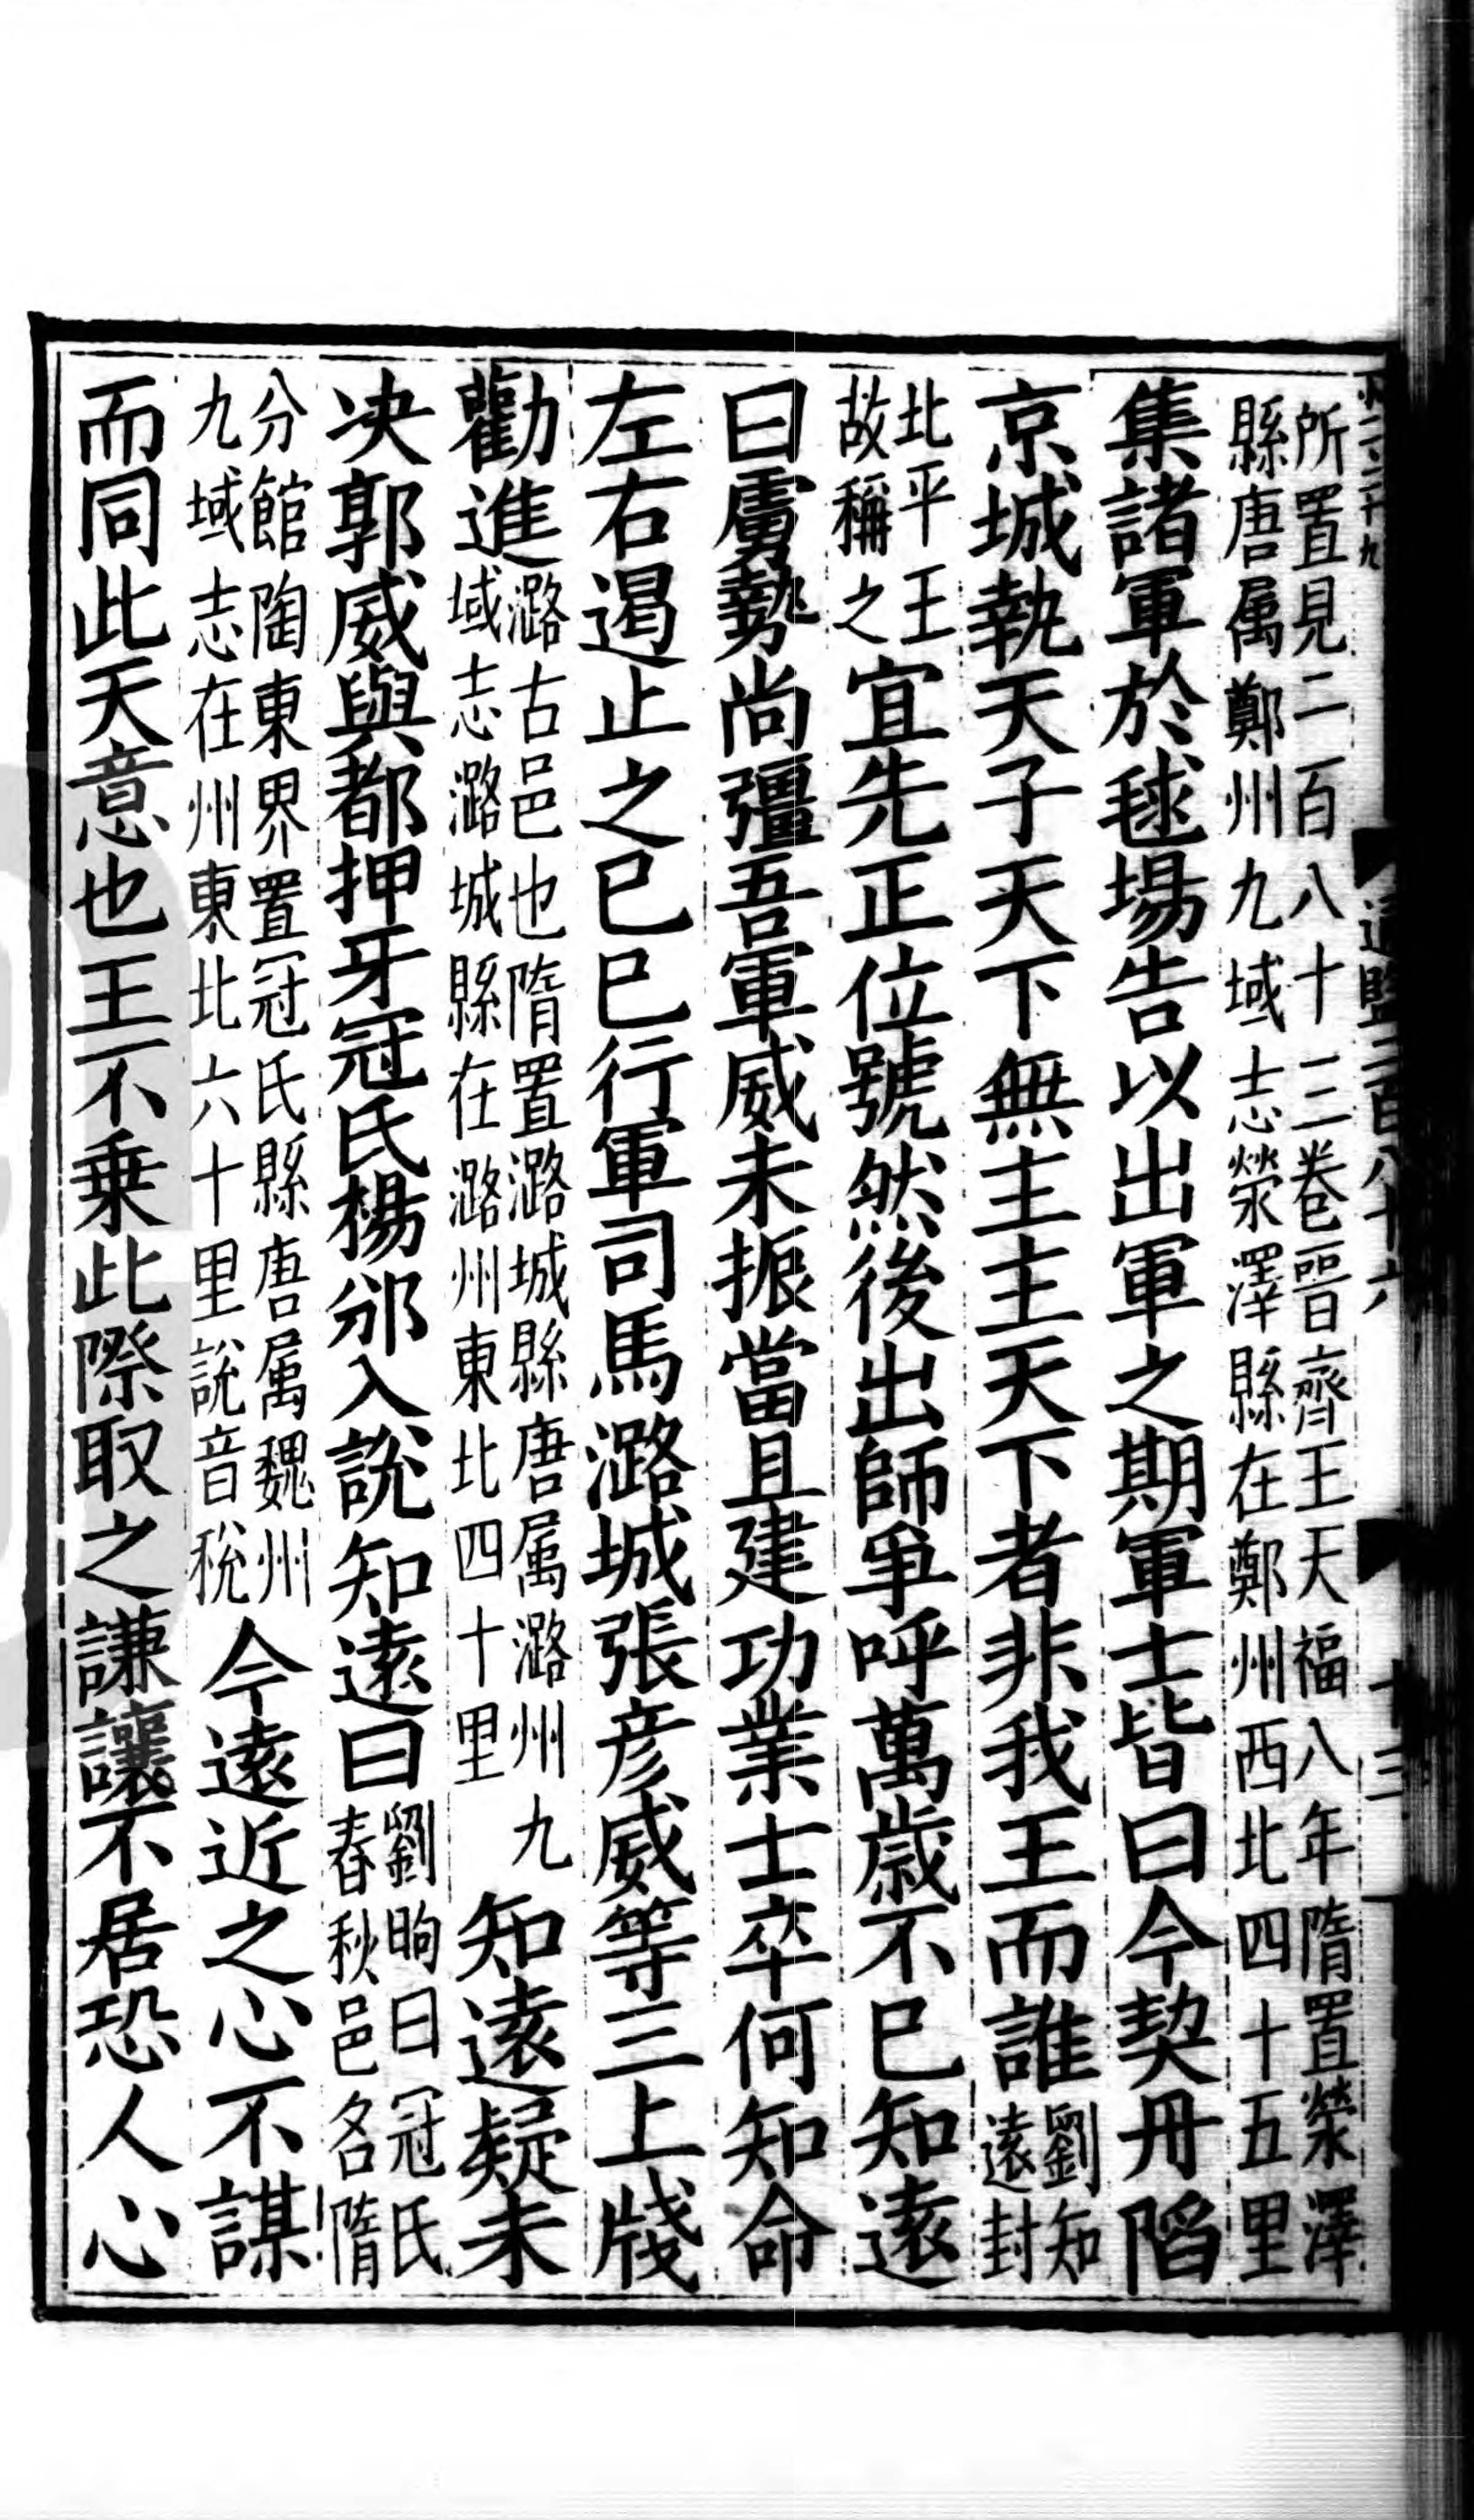 所置見二百八十三卷晉齊王天福八年隋置滎澤
縣唐属鄭州九域志滎澤縣在鄭州西北四十五里
集諸軍於毬場告以出軍之期軍士皆曰今契丹陷
京城執天子天下無主主天下者非我王而誰劉知遠封
北平王故稱之宜先正位號然後出師爭呼萬歲不已知遠
曰虜勢尚彊吾軍威未振當且建功業士卒何知命
左右遏止之已巳行軍司馬潞城張彦威等三上牋
勸進潞古邑也隋置潞城縣唐属潞州九域志潞城縣在潞州東北四十里知遠疑未
决郭威與都押牙冠氏楊邠入說知遠曰劉昫曰冠氏春秋邑名隋
分館陶東界置冠氏縣唐属魏州九域志在州東北六十里說音稅今遠近之心不謀
而同此天意也王不乗此際取之謙讓不居恐人心